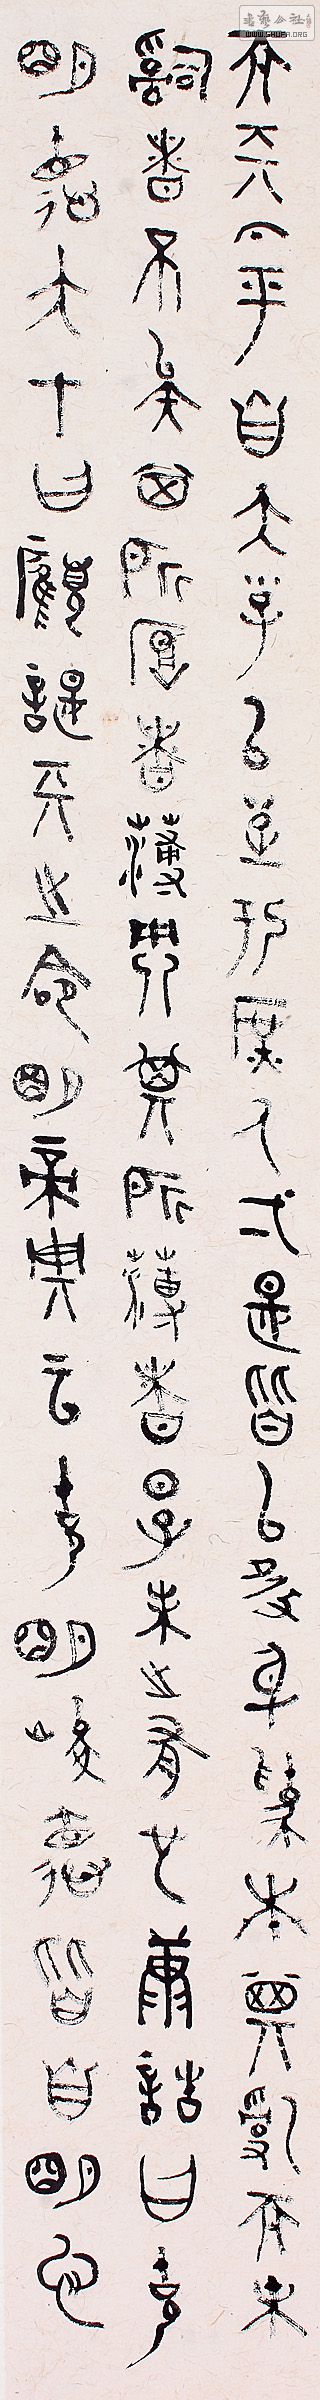 书艺公社
WWW.SHUFA.ORG
而天下平自天子以至於庶人弌是皆以修身為本其亂而末
治者不矣其所厚者薄而其所薄者厚未之有也康誥曰克
明德大甲曰顧諟天之命明帝典云克明峻德皆自明也